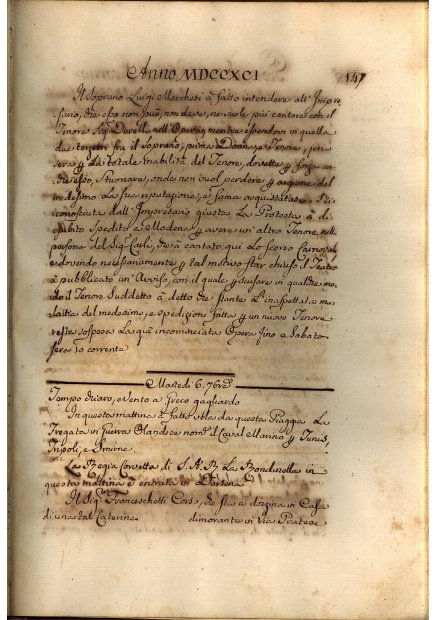 Anno MDCCXCI
147
Il Soprano Luigi Marchesi à fatto intendere all' Impre-
sario, che esso non può, non deve, ne vuole più cantare con il
Tenore Sig. Davelli nell' Opera, mentre essendovi in quella
due terzetti fra il Soprano, prima Donna, e Tenore,
e totale inabilità del Tenore, dovette
esso, stuonare, onde non vuol perdere cagione del
medesimo la sua riputazione, e fama acquistata.
conosciuta dall' Impresario giusta la Protesta à di
subito spedito a Modena avere un' altro Tenore nella
persona del Sig. Carli, che à cantato qui lo scorso Carnevale
e dovendo necessariamente tal motivo star chiuso il Teatro
à pubblicato un' Avviso, con il quale scusare in qualche mo-
do il Tenore Suddetto à detto che stante l' inaspettata ma-
lattia del medesimo, e spedizione fatta un nuovo Tenore
resta sospesa la già incominciata Opera fino a Sabato
sera 10 corrente
Martedi 6. 7bre
Tempo chiaro, e Vento a Greco gagliardo
In questa mattina à fatto vela da questa Piaggia La
Fregata in guerra Olandese nom. il Caval Marino Tunis,
Tripoli, e Smirne.
La Regia Corvetta di S. A. R. La Rondinella in
questa mattina è entrata in Darsena
Il Sig. Franceschetti Corso, che sta a dozzina in Casa
di una tal Caterina dimorante in Via Pratese